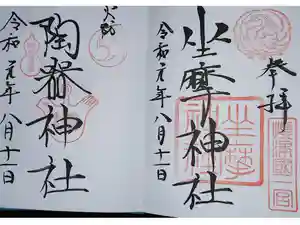 奉拝
坐摩神社
令和元年八月十一日
火防
陶器神社
令和元年八月十一日